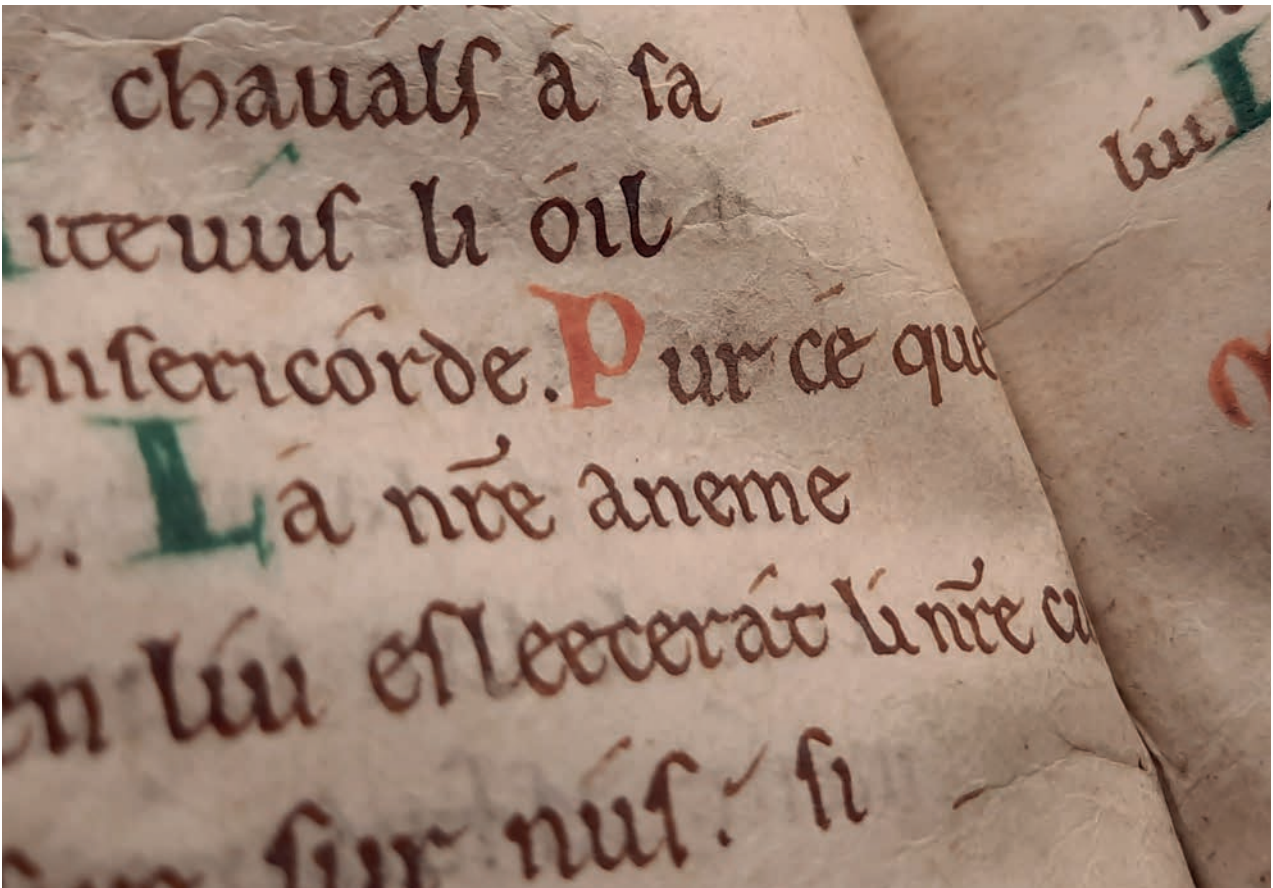 chauals á sa
iteuuis li óil
misericórde. Pur cé que
La nr̄e aneme
en líu esleecerát li nr̄e cu
sur nús: si
líu. L